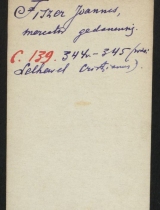 Fitzer Joannes,
mercator gedanensis.
C. 139. 344.-345 (vide
Lelhavel Cristianus).